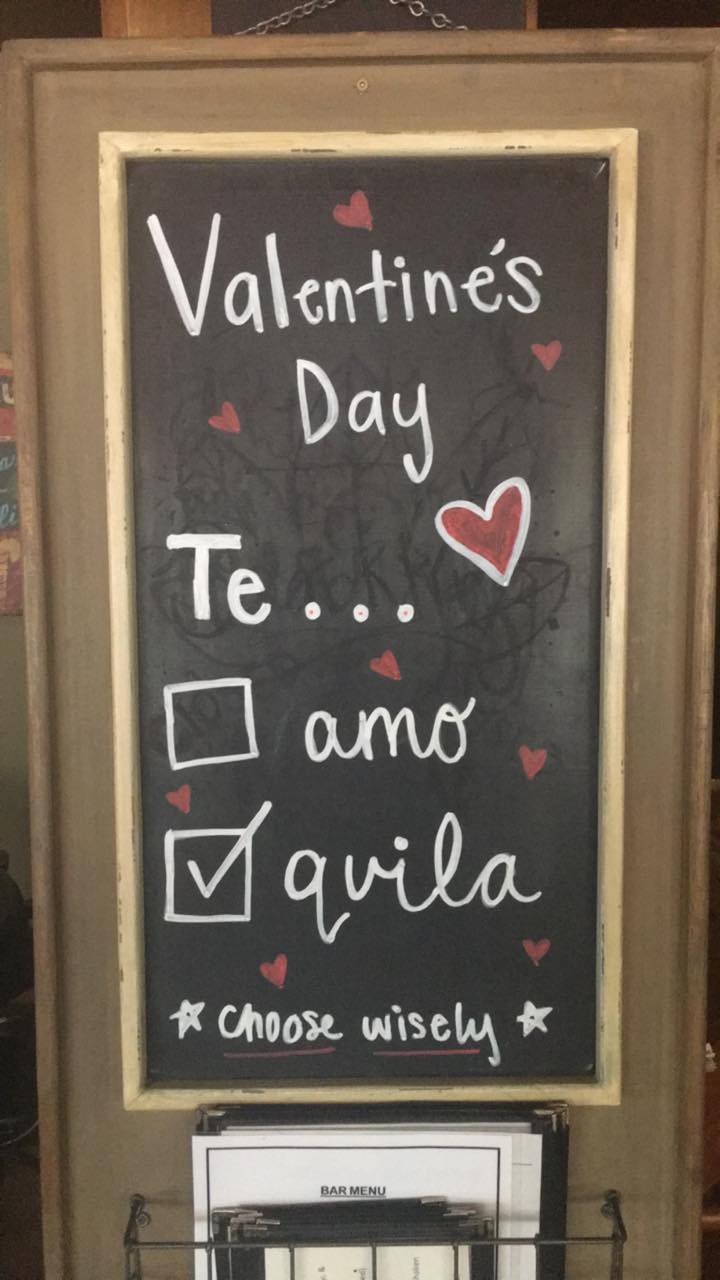 Valentine's
Day
Te ...
amo
quila
choose wisely
BAR MENU